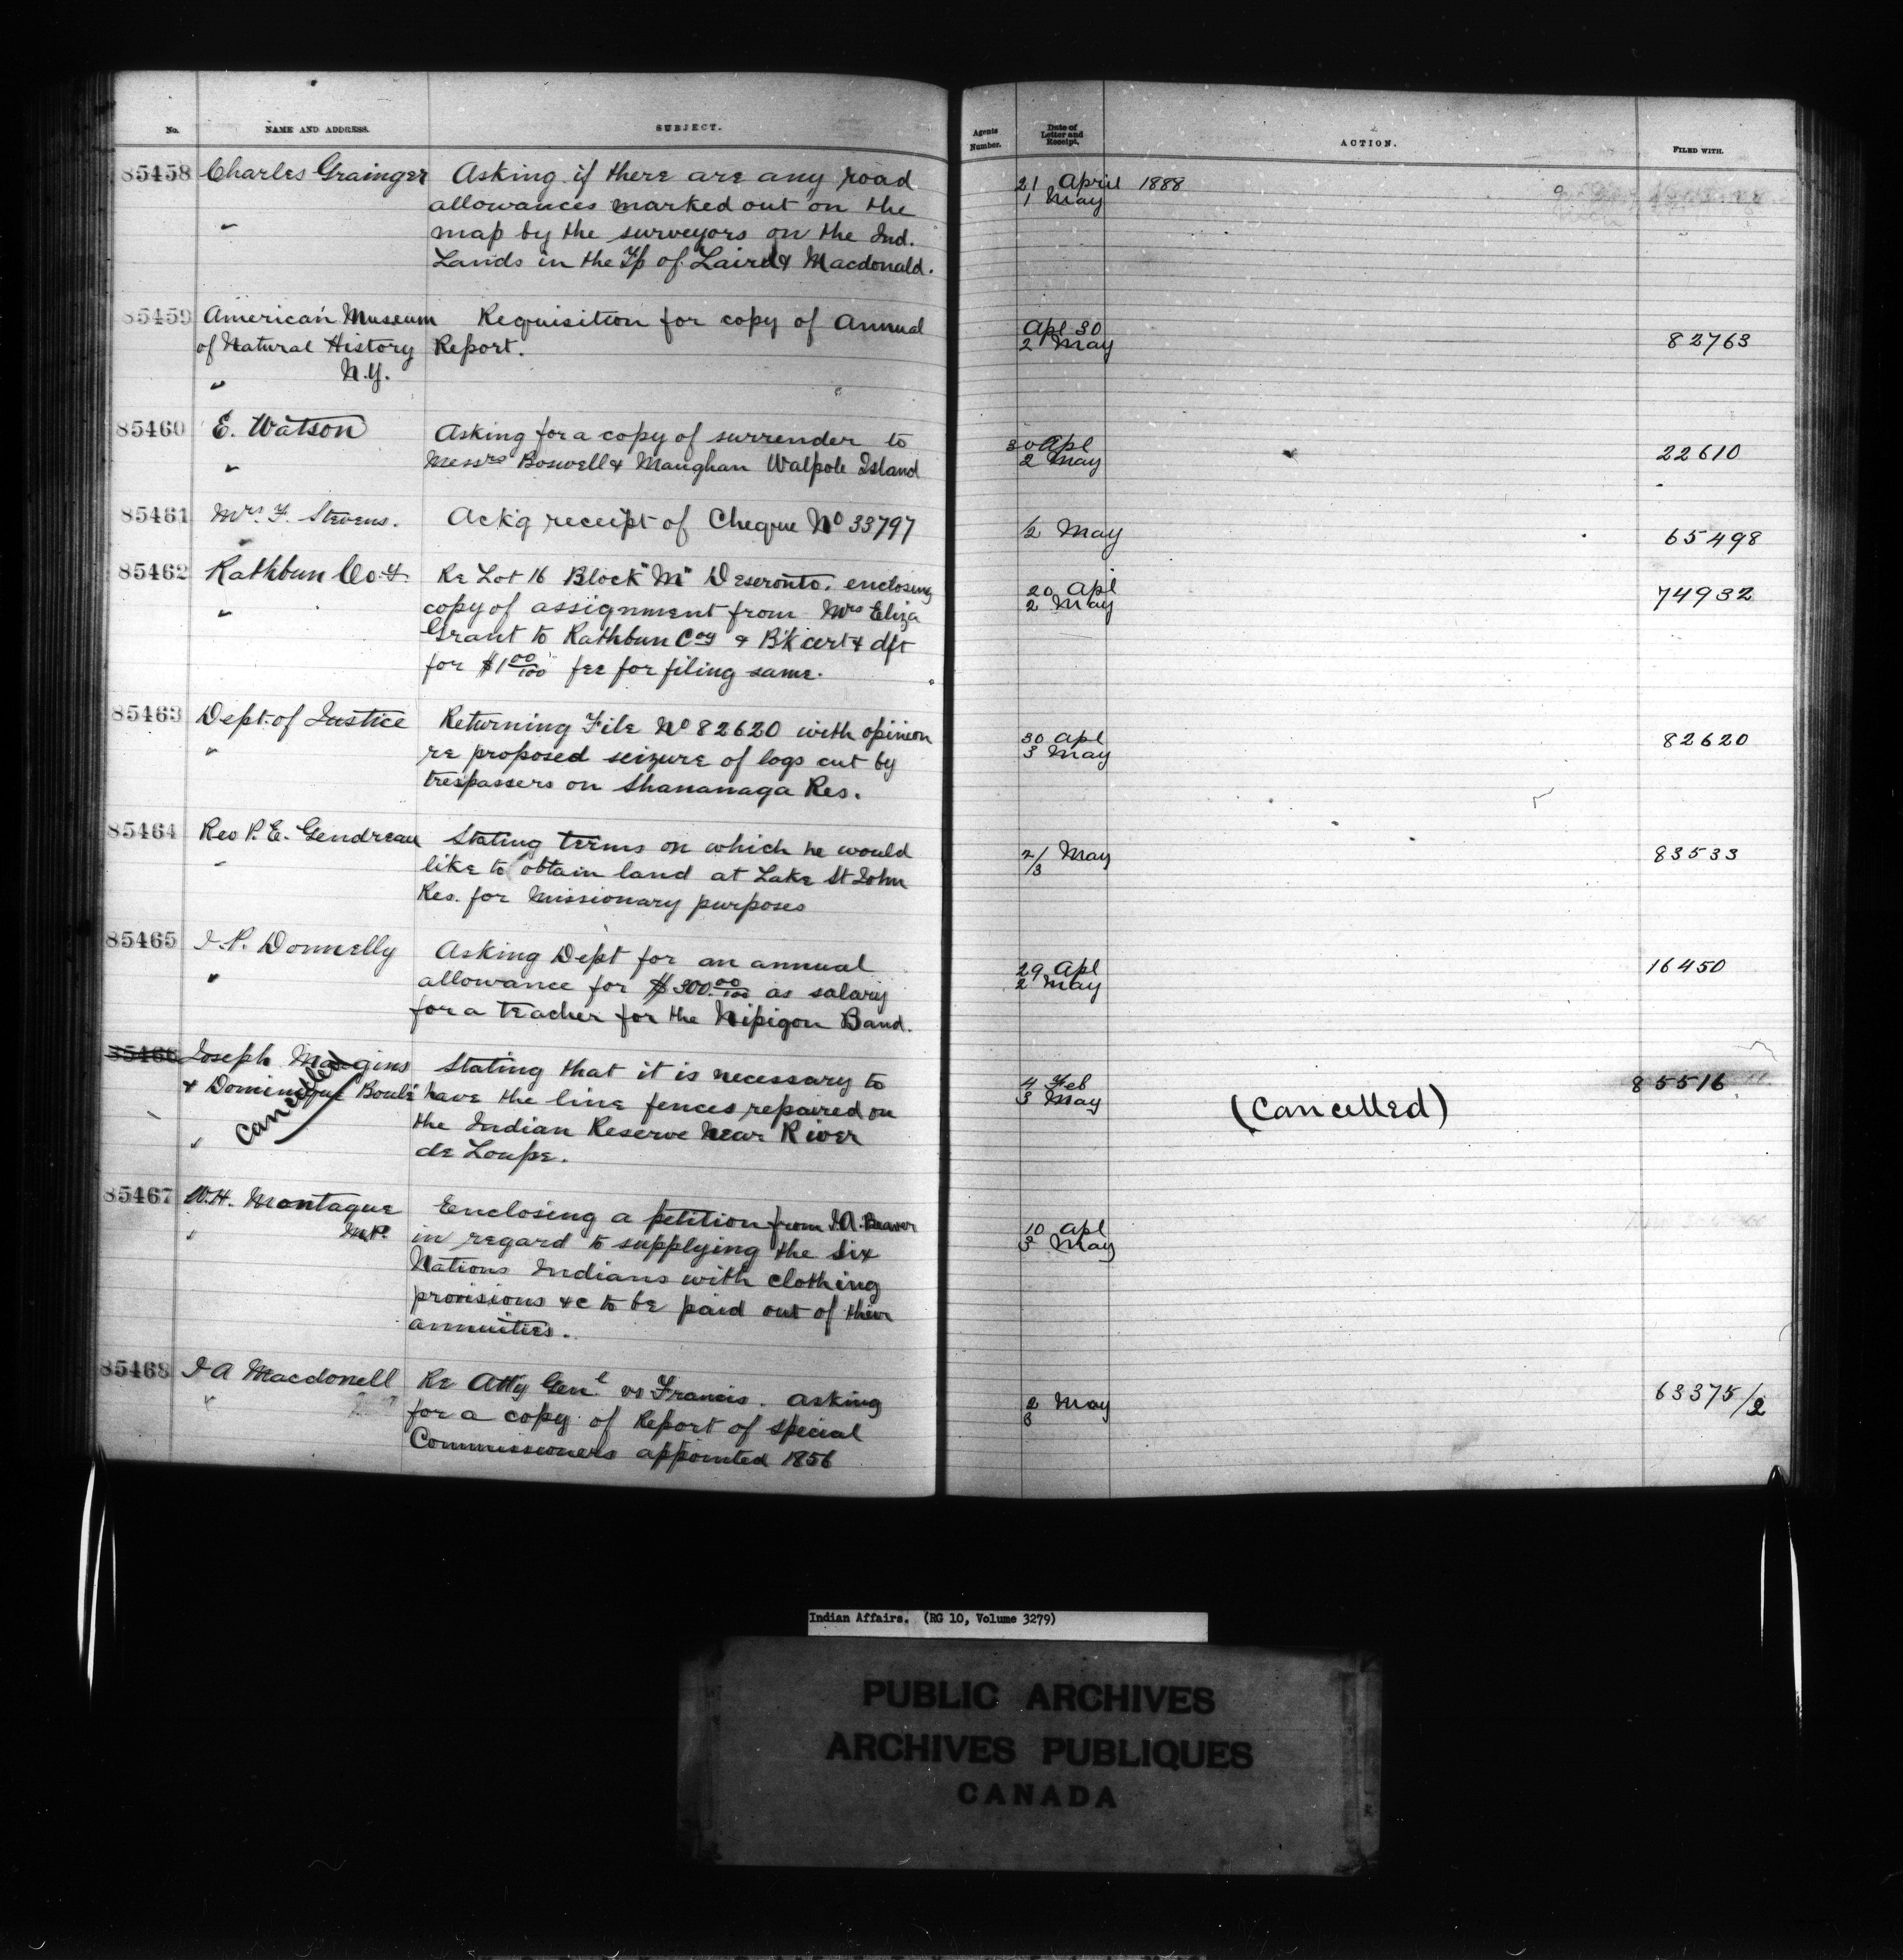 No. NAME AND ADDRESS. SUBJECT. Agents Number. Date of Letter and Receipt. ACTION. FILED WITH.
85458 Charles Grainger Asking if there are any road 21 April 1888
allowances marked out on the 1 May
" map by the surveyors on the Ind.
Lands in the Tp of Laird & Macdonald.
85459 American Museum Requisition for copy of Annual Apl 30
of Natural History Report. 2 May 82763
" N.Y.
85460 E. Watson Asking for a copy of surrender to 30 Apl
" Messrs Boswell & Maughan Walpole Island 2 May 22610
85461 Mrs. F. Stevens. Ack'g receipt of Cheque No 33797 1/2 May 65498
85462 Rathbun Co.y Re Lot 16 Block "M" Deseronto. enclosing 20 Apl
" copy of assignment from Mrs Eliza 2 May 74932
Grant to Rathbun Coy & B'k cert & dft
for $1 00/100 fee for filing same.
85463 Dept. of Justice Returning File No 82620 with opinion 30 Apl 82620
" re proposed seizure of logs cut by 3 May
trespassers on Shananaga Res.
85464 Rev P. E. Gendreau Stating terms on which he would 2/3 May 83533
" like to obtain land at Lake St John
Res. for missionary purposes
85465 J. P. Donnelly Asking Dept for an annual 29 Apl 16450
" allowance for $300.00/100 as salary 2 May
for a teacher for the Nipigon Band.
85466 Joseph Stating that it is necessary to 4 Feb 85516
& Dominique have the line fences repaired on 3 May (Cancelled)
" Cancelled the Indian Reserve near River
de Loupe.
85467 W.H. Montague Enclosing a petition from J.A. Beaver 10 Apl
" M.P. in regard to supplying the Six 3 May
Nations Indians with clothing
provisions &c to be paid out of their
annuities.
85468 J A Macdonell Re Atty Genl. vs Francis. asking 2 May 63375/2
" for a copy of Report of special 3
Commissioners appointed 1856
Indian Affairs. (RG 10, Volume 3279)
PUBLIC ARCHIVES
ARCHIVES PUBLIQUES
CANADA